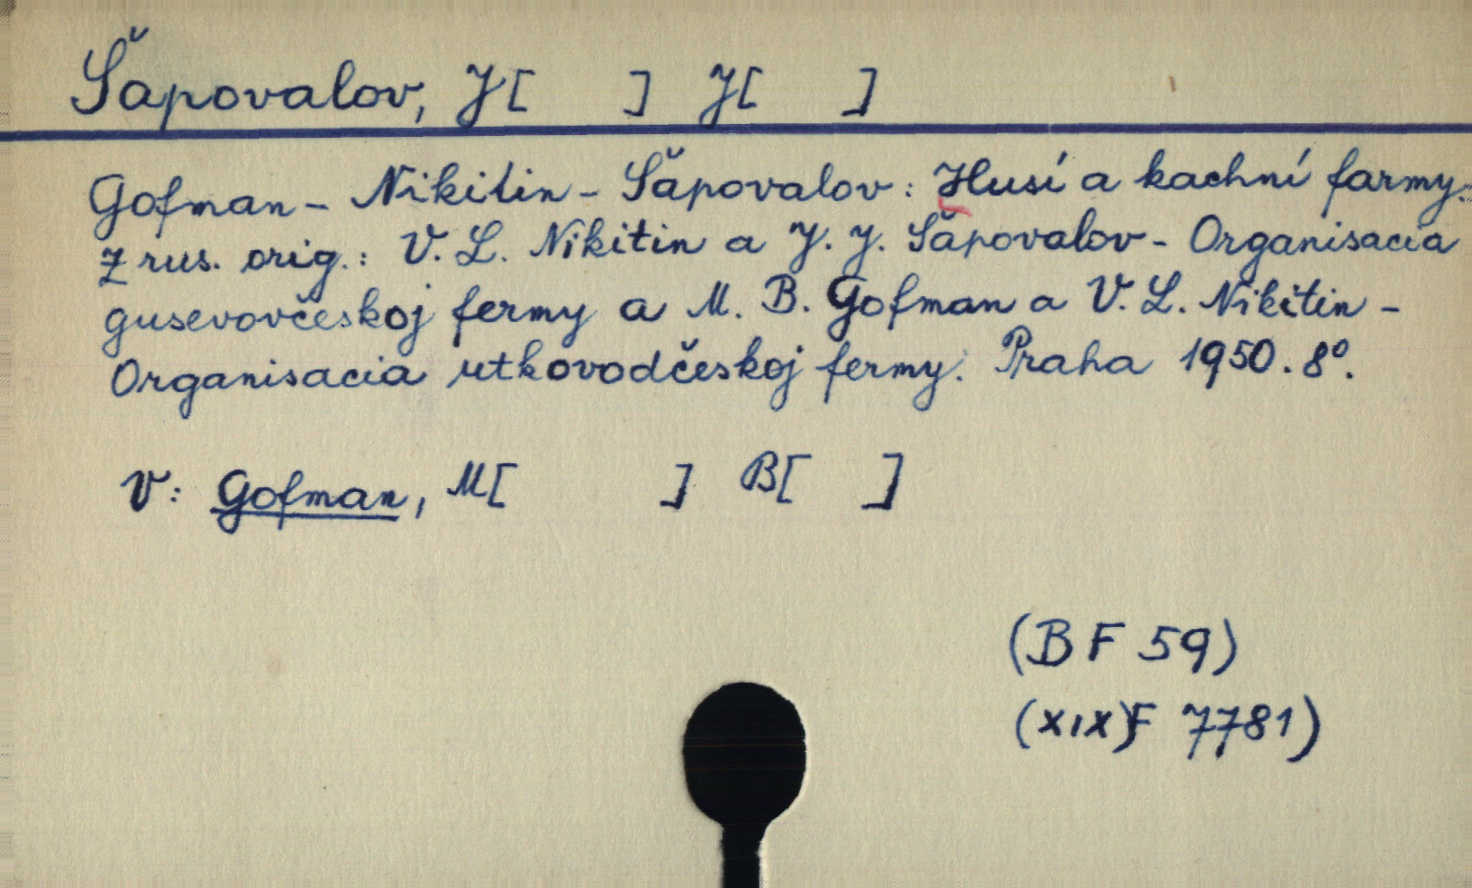 Šapovalov, J[ ] J[ ]
Gofman - Nikitin - Šapovalov: Husí a kachní farmy.
Z rus. orig.: V. L. Nikitin a J. J. Šapovalov - Organisacia
gusevovčeskoj fermy a M. B. Gofman a V. L. Nikitin -
Organisacia utkovodčeskoj fermy. Praha 1950. 8°.
V: Gofman, M[ ] B[ ]
(BF 59)
(XIX)F 7781)